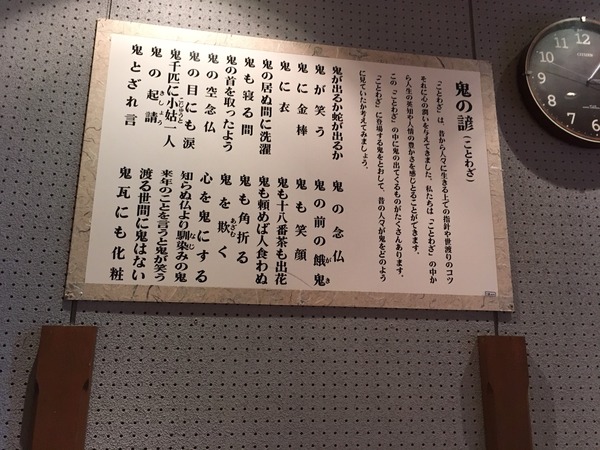 鬼の諺(ことわざ)
「ことわざ」は、昔から人々に生きる上での指針や世渡りのコツ
それに心の潤いを与えてきました。私たちは「ことわざ」の中か
ら人生の英知や人情の豊かさを感じとることができます。
この「ことわざ」の中に鬼の出てくるものがたくさんあります。
「ことわざ」に登場する鬼をとおして、昔の人々が鬼をどのよう
に見ていたか考えてみましょう。
鬼が出るか蛇が出るか
鬼が笑う
鬼に金棒
鬼に衣
鬼の居ぬ間に洗濯
鬼も寝る間
鬼の首を取ったよう
鬼の空念仏
鬼の目にも涙
鬼千匹に小姑一人
鬼の起請
鬼とざれ言
鬼の念仏
鬼の前の餓鬼
鬼も笑顔
鬼も十八番茶も出花
鬼も頼めば人食わぬ
鬼も角折る
鬼を欺く
心を鬼にする
知らぬ仏より馴染みの鬼
来年のことを言うと鬼が笑う
渡る世間に鬼はない
鬼瓦にも化粧
CITIZEN
12
11
10
9
8
7
6